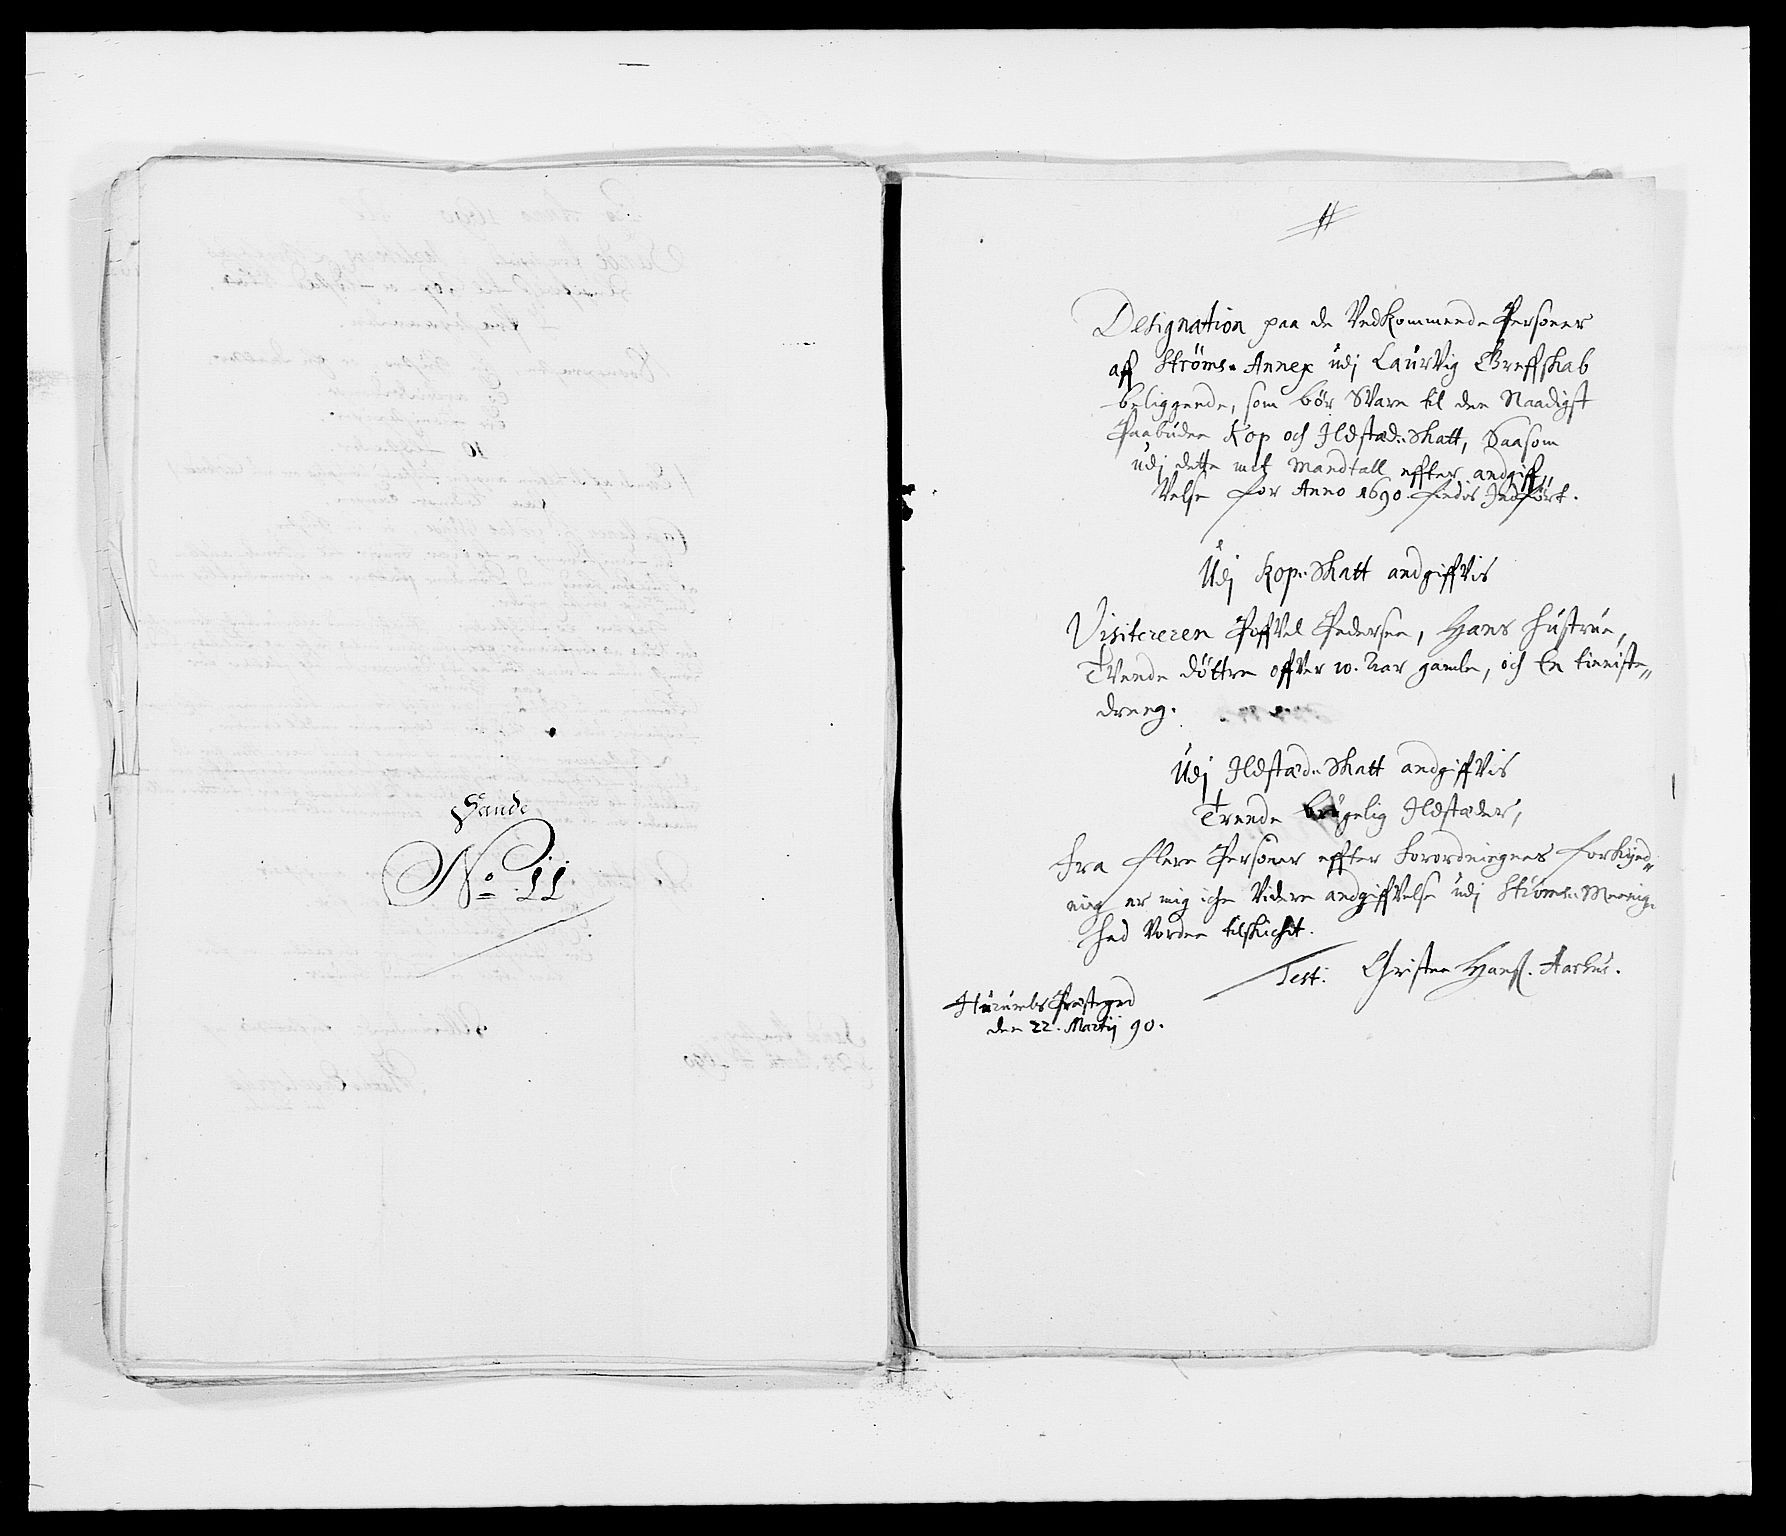 Sande
No 11
Designation paa de Vedkommende Personer
aff Strøms Annex udj Laurvig Greffskab
beliggende, som bør Svare til den Naadigst
Paabudne Kop och Ildstæd-Skatt, Saasom
udj dette mit Mandtall effter andgiff„
Velse for Anno 1690 findes Indført.
Udj Kop-Skatt andgiffvis
Visitereren Poffvel Pedersen, Hans hustrue,
Tvende døttre offver 10. Aar gamle, och En tieniste„
dreng.
Udj Ildstæd-Skatt andgiffvis
Trende brugelig Ildstæder,
Fra flere Personer effter forordningens forkynd„
ning er mig iche Videre andgiffvelse udj Strøms Menig„
hed vorden tilskichet.
Test. Christen Hanss. Aarhus.
Hurumbs Præstegrd
den 22. Martij 90.